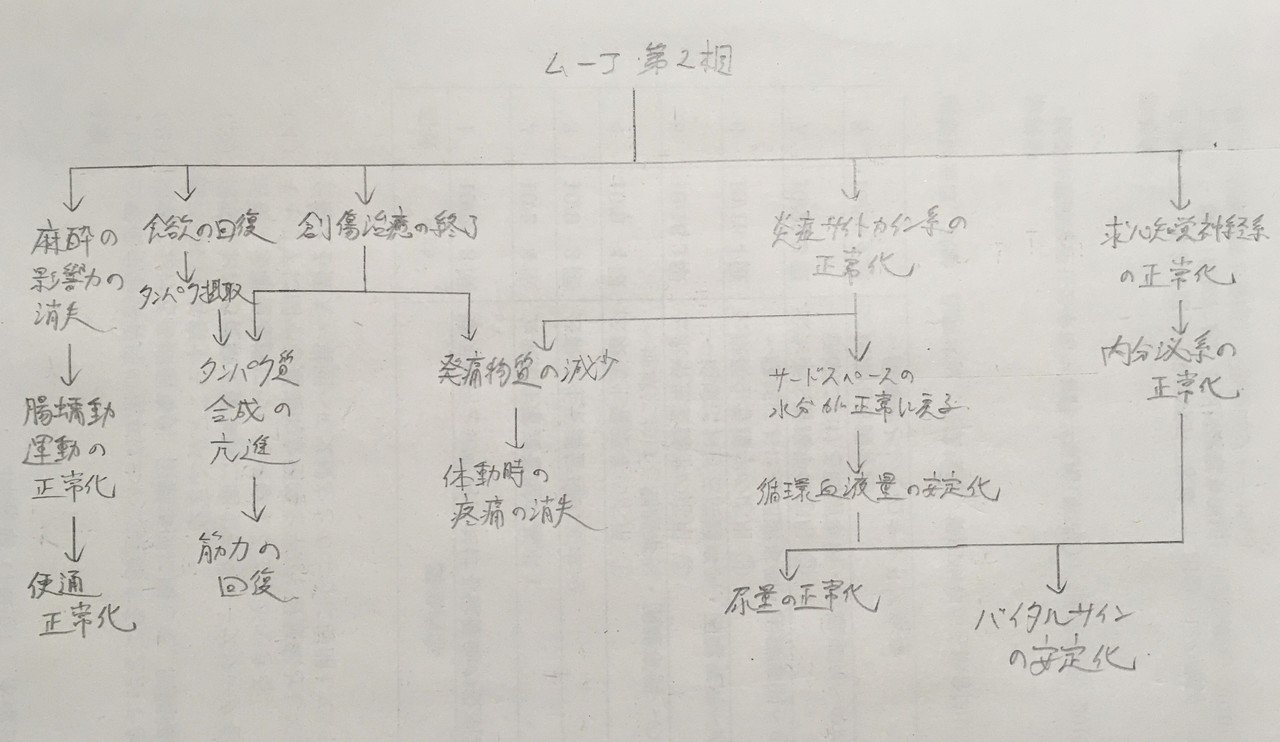 ムーア 第2相
麻酔の
影響力の
消失
腸蠕動
運動の
正常化
便通
正常化
食欲の回復
タンパク摂取
創傷治癒の終了
タンパク質
合成の
亢進
筋力の
回復
発痛物質の減少
体動時の
疼痛の消失
炎症サイトカイン系の
正常化
サードスペースの
水分が正常に戻る
循環血液量の安定化
尿量の正常化
求心知覚神経系
の正常化
内分泌系の
正常化
バイタルサイン
の安定化